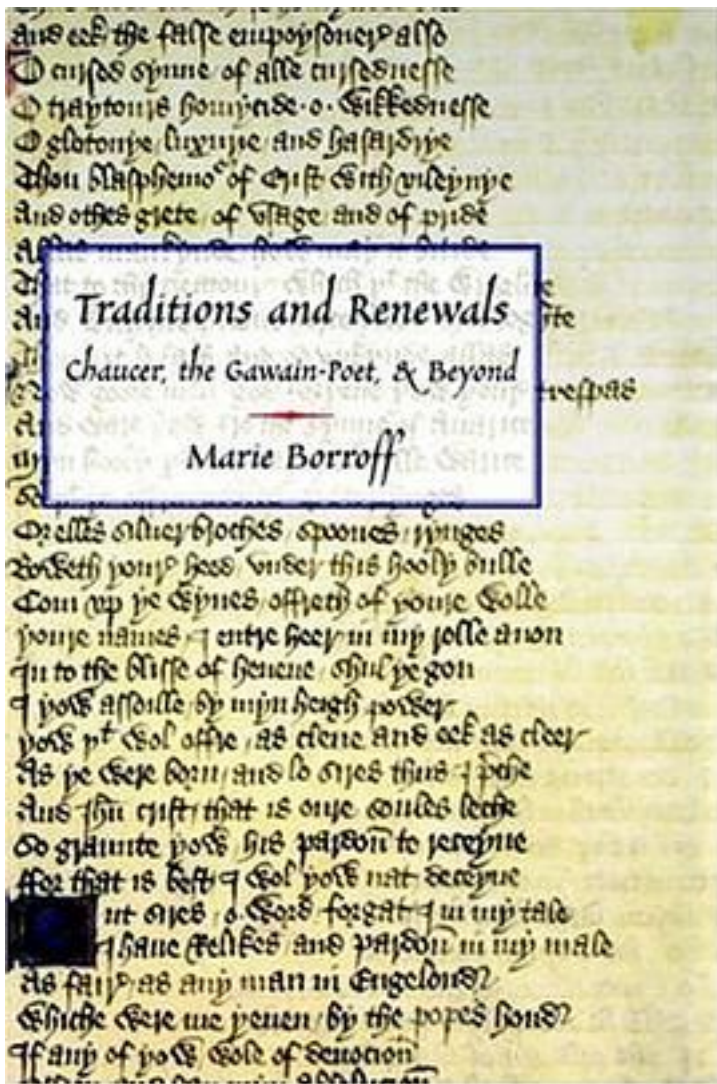 And eek the false empoysoner also
O cursed synne of alle cursednesse
O traytours homycide . o . wikkednesse
O glotonye / luxurie / and hasardrye
Thou blasphemoʳ of Crist with vileynye
And othes grete / of usage and of pride
Traditions and Renewals
Chaucer, the Gawain-Poet, & Beyond
Marie Borroff
trespas
Or elles siluer broches / spoones / rynges
Boweth your heed / under this hooly bulle
Com up ye wyues / offreth of youre wolle
youre names I entre heer in my rolle anon
In to the blisse of heuene / shul ye gon
I yow assoille by myn heigh power
yow yᵗ wol offre / as clene and eek as cleer
As ye were born / and lo sires thus I pche
And Ihu crist / that is oure soules leche
So graunte yow his pardon to receyue
ffor that is best / I wol yow nat deceyue
ut sires / o word forgat I in my tale
I haue relikes and pardon in my male
As fair as any man in Engelond
Whiche were me yeuen / by the popes hond
If any of yow wole of deuocion